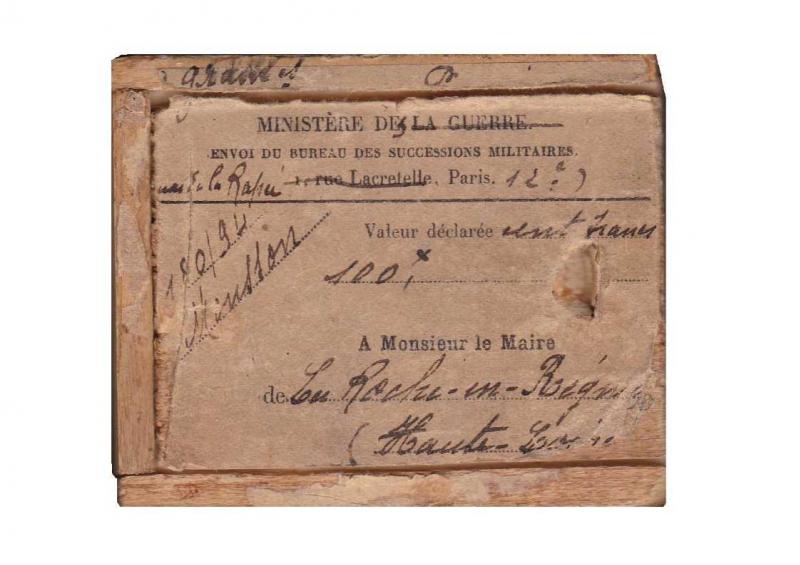 MINISTÈRE DES LA GUERRE.
ENVOI DU BUREAU DES SUCCESSIONS MILITAIRES.
de la Rapée 1, rue Lacretelle, Paris. 12e)
Valeur déclarée cent francs
100,
A Monsieur le Maire
de La Roche-en-Régnier
(Haute-Loire